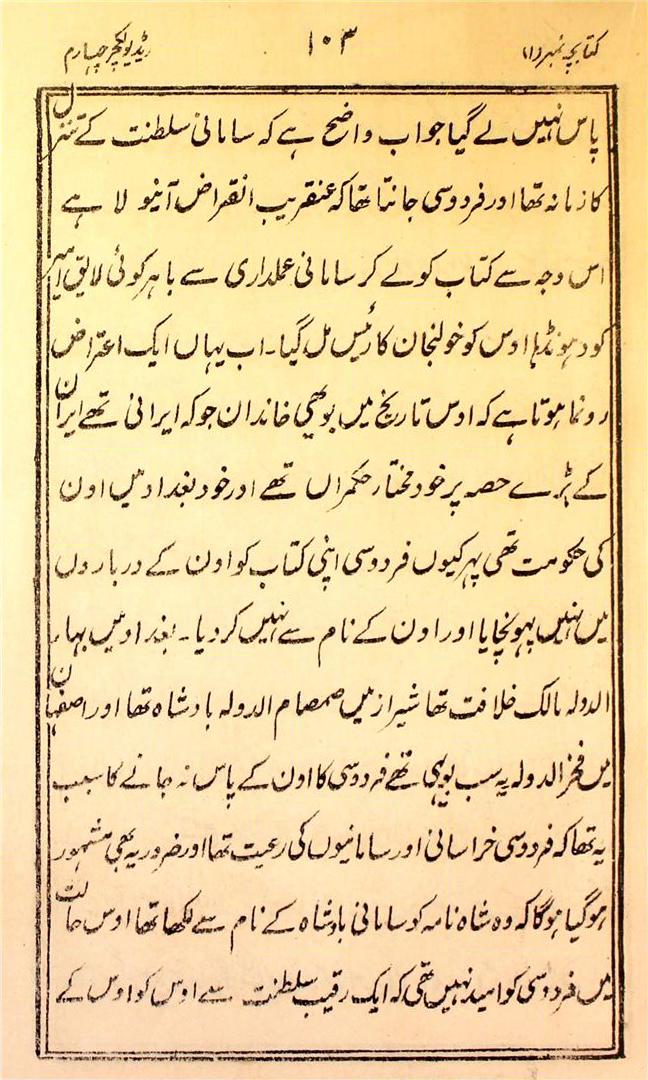 کتابچہ نمبر (۱)
۱۰۳
ریڈیو لکچر چہارم
پاس نہیں لے گیا جواب واضح ہے کہ سامانی سلطنت کے تنزل
کا زمانہ تھا اور فردوسی جانتا تھا کہ عنقریب انقراض آنیو لا ہے
اس وجہ سے کتاب کو لے کر سامانی عملداری سے باہر کوئی لایق امیر
کو دہونڈہا اوس کو خولنجان کا رئیس مل گیا۔ اب یہاں ایک اعتراض
رونما ہوتا ہے کہ اوس تاریخ میں بویھی خاندان جو کہ ایرانی تھے ایران
کے بڑے حصہ پر خود مختار حکمراں تھے اور خود بغداد میں اون
کی حکومت تھی پہر کیوں فردوسی اپنی کتاب کو اون کے درباروں
میں نہیں پہونچایا اور اون کے نام سے نہیں کر دیا۔ بغداد میں بہاء
الدولہ مالک خلافت تھا شیراز میں صمصام الدولہ بادشاہ تھا اور اصفہان
میں فخر الدولہ یہ سب بویہی تھے فردوسی کا اون کے پاس نہ جانے کا سبب
یہ تھا کہ فردوسی خراسانی اور سامانیوں کی رعیت تھا اور ضرور یہ بھی مشہور
ہو گیا ہو گا کہ وہ شاہ نامہ کو سامانی بادشاہ کے نام سے لکھا تھا اوس حالت
میں فردوسی کو امید نہیں تھی کہ ایک رقیب سلطنت سے اوس کو اوس کے